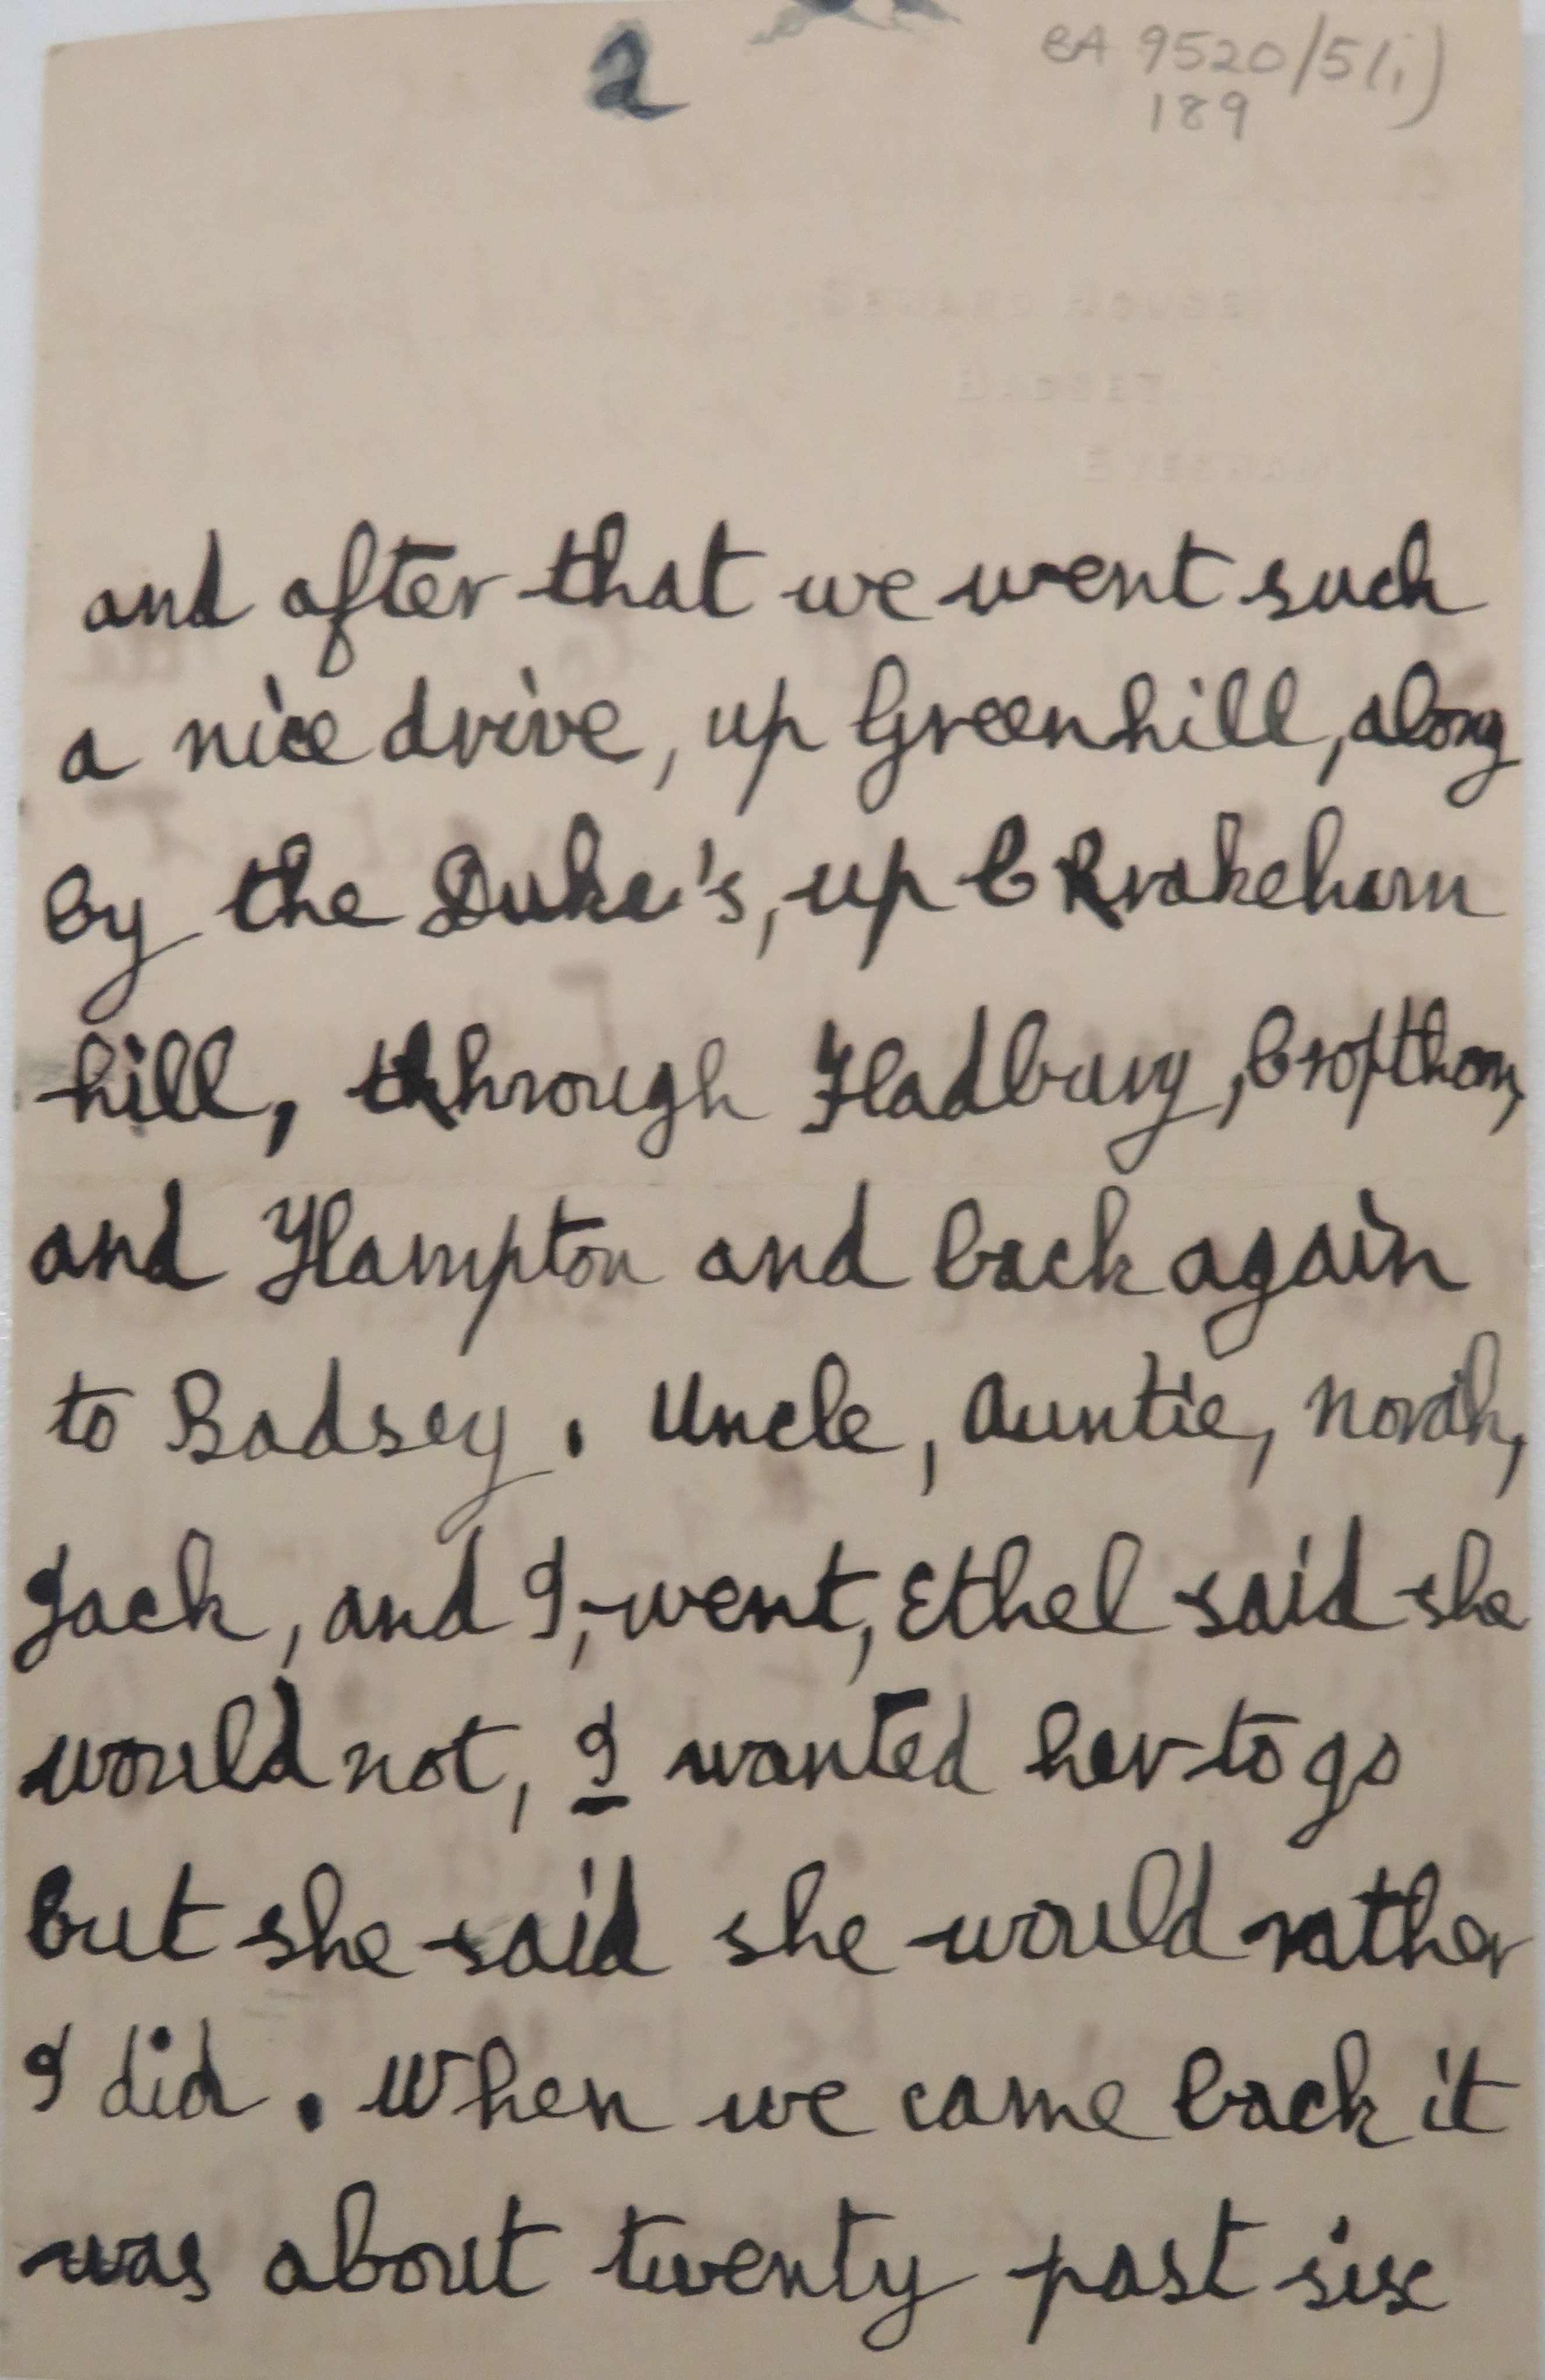 2
BA 9520/5(i)
189
and after that we went such
a nice drive, up Greenhill, along
by the Duke's, up Crakeham
hill, through Fladbury, Cropthorn,
and Hampton and back again
to Badsey. Uncle, Auntie, Norah,
Jack, and I, went, Ethel said she
would not, I wanted her to go
but she said she would rather
I did. When we came back it
was about twenty past six